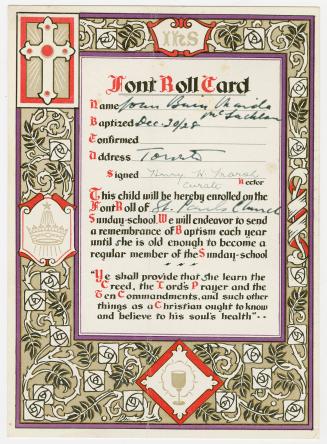 IHS
Font Roll Card
Name John
McLachlan
Baptized Dec. 30/28
Confirmed
Address Toronto
Signed Henry H. Marsh
Curate Rector
This child will be hereby enrolled on the
Font Roll of St. Paul's Church
Sunday-school. We will endeavor to send
a remembrance of Baptism each year
until she is old enough to become a
regular member of the Sunday-school
"Ye shall provide that she learn the
Creed, the Lord's Prayer and the
Ten Commandments, and such other
things as a Christian ought to know
and believe to his soul's health"--